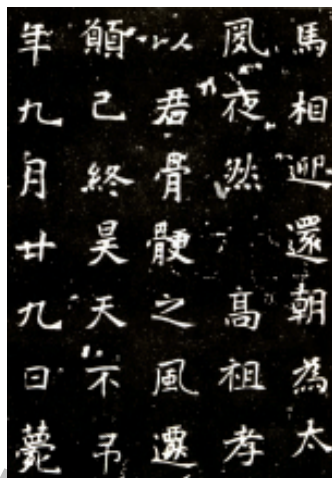 馬相迎還朝為太
夙夜然高祖孝
以君骨骾之風遷
顛己終昊天不弔
年九月廿九日薨